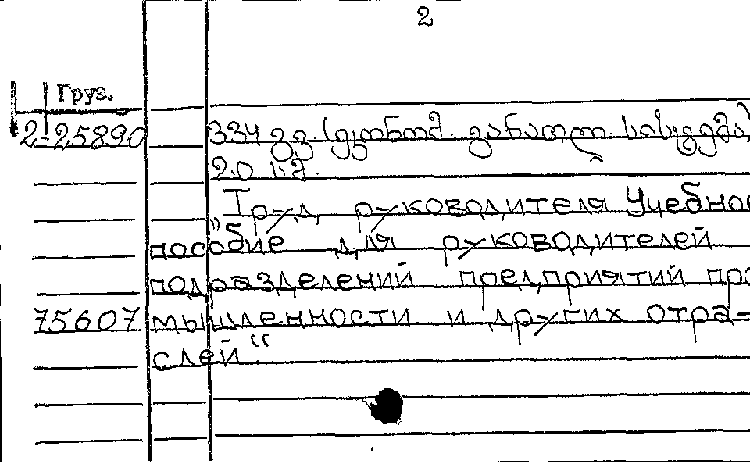 2
Груз.
2-25890 334 გვ. (ეკონომ. განათლ. სისტემა)
2.0 1.7.
„Труд руководителя Учебное
пособие для руководителей
подразделений предприятий про
75607 мышленности и других отра-
слей“